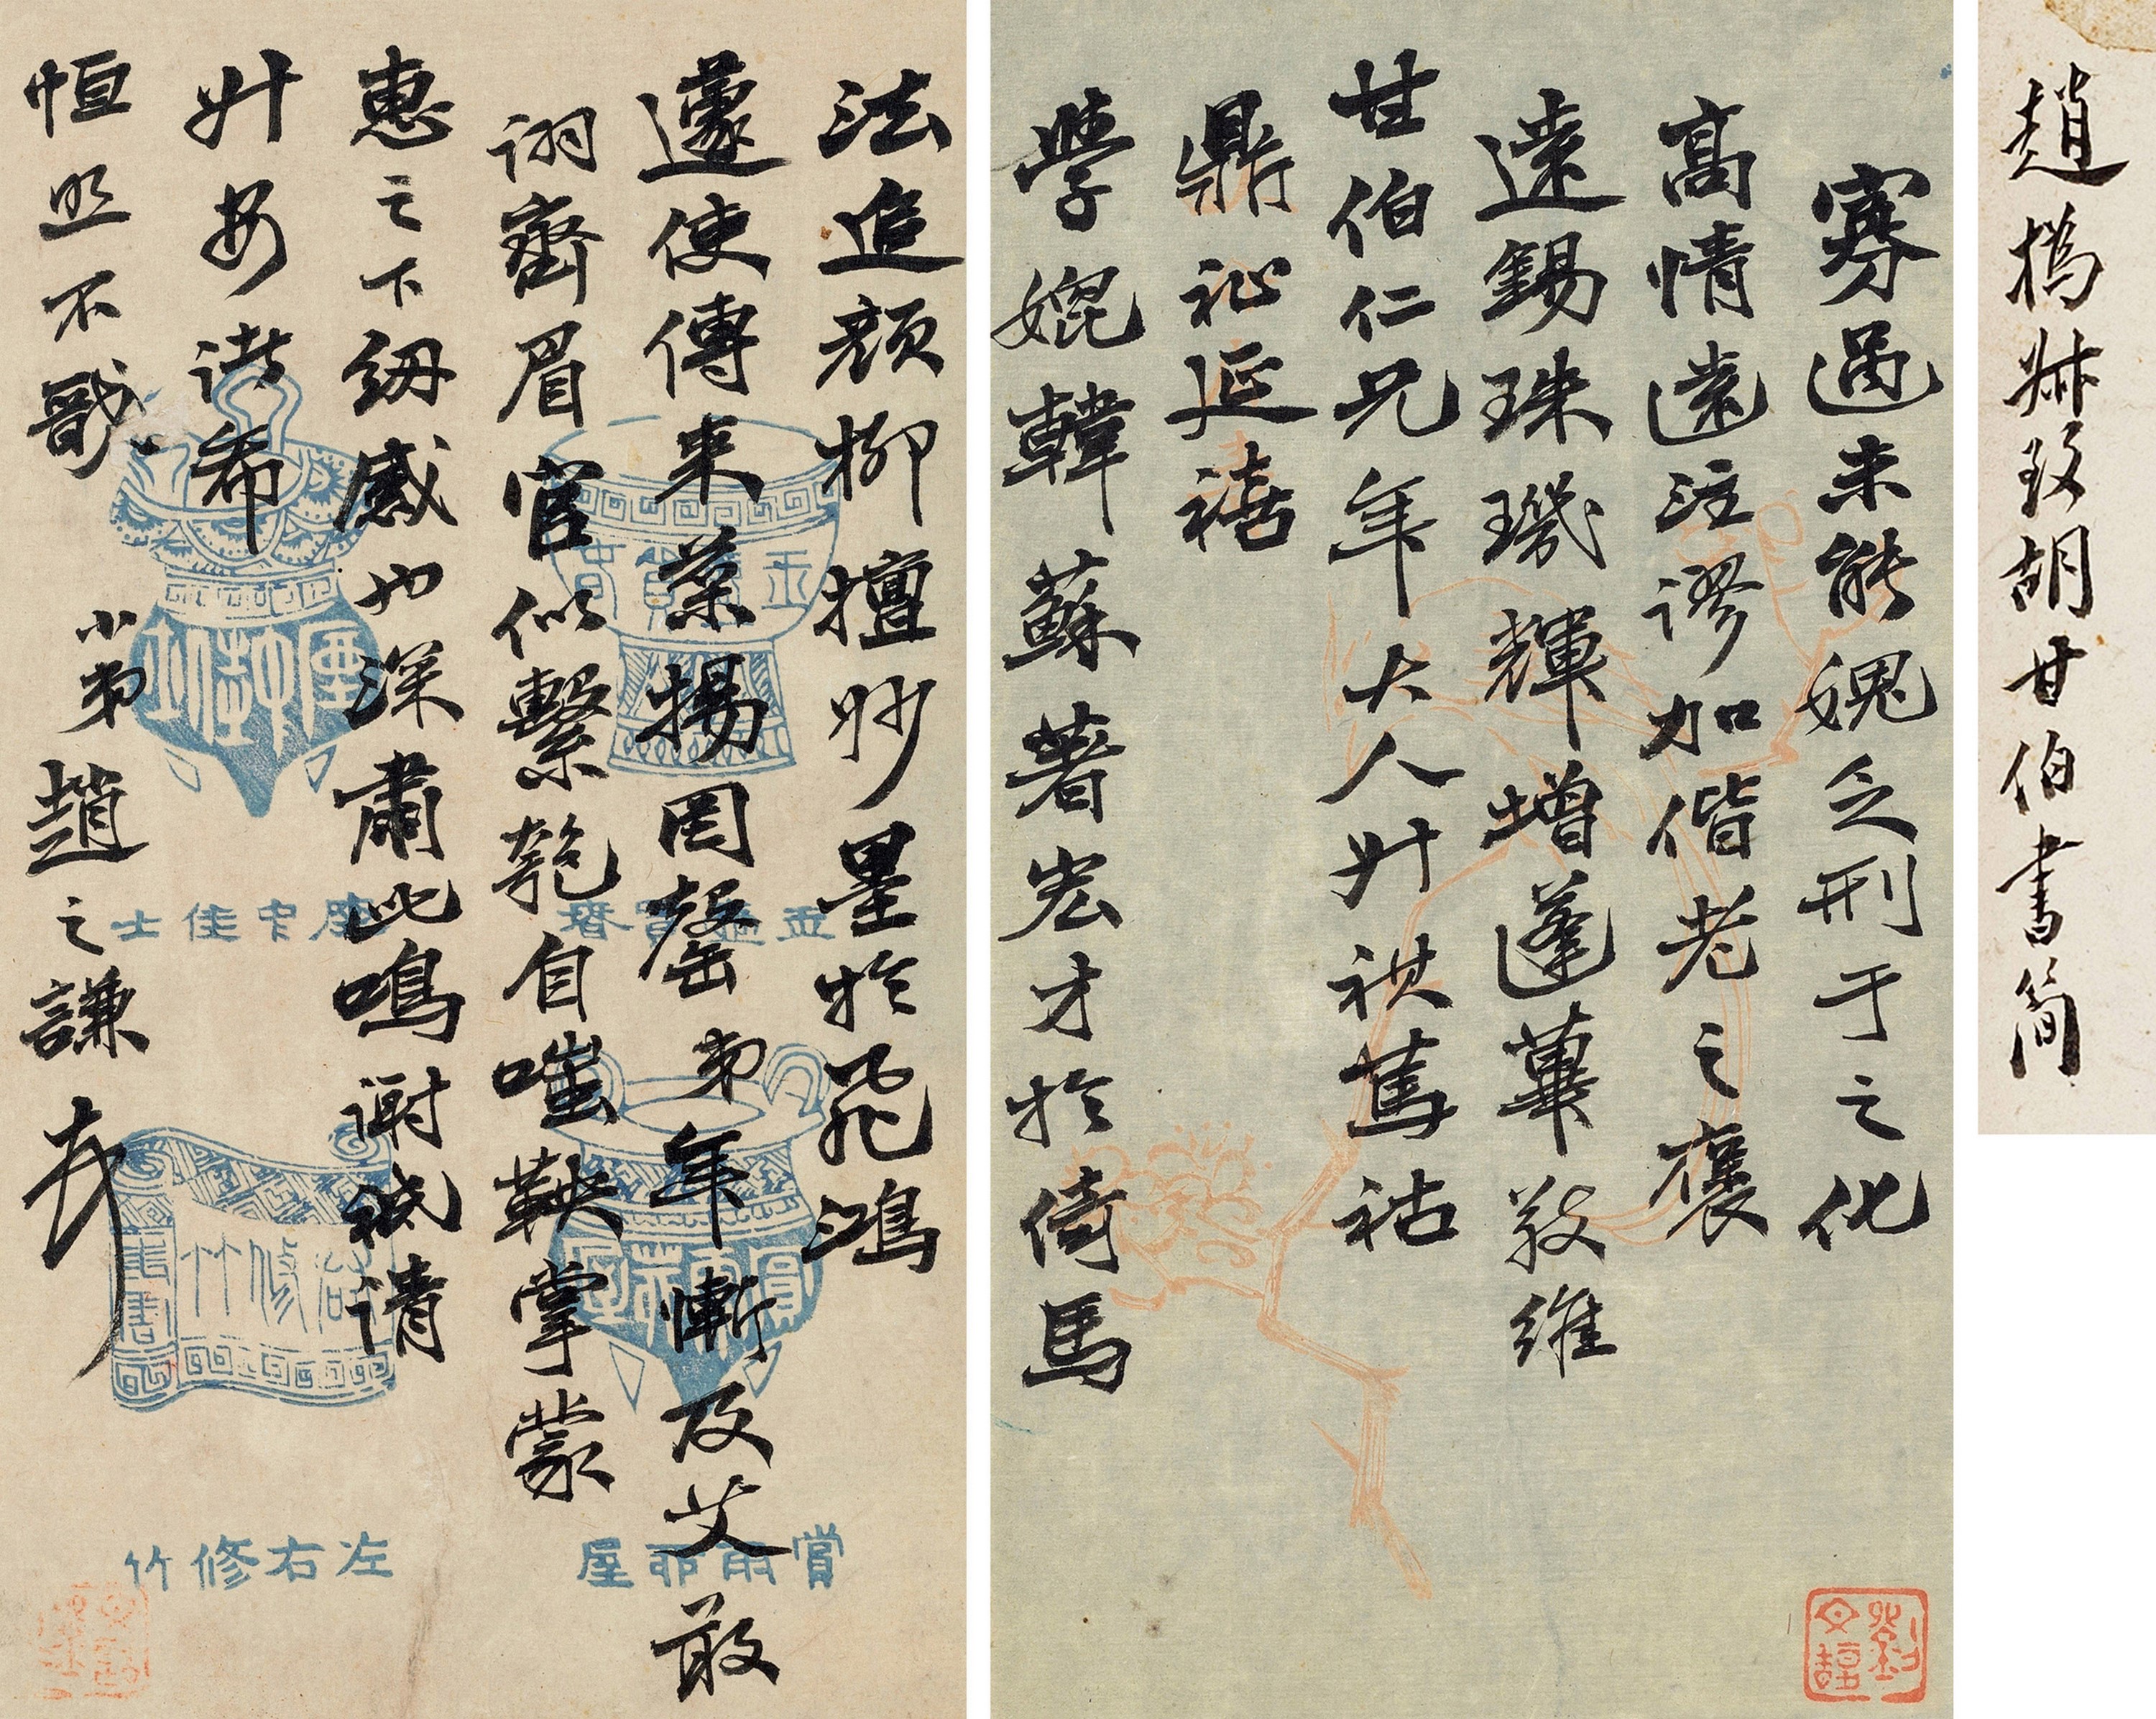 趙撝叔致胡甘伯書简
寡過未能媿乏刑于之化
高情遠注謬加偕老之褒
遠錫珠璣輝增蓬蓽敬維
甘伯仁兄年大人升祺篤祜
鼎祉延禧
學媲韓蘇著宏才於倚馬
法追顏柳擅妙墨於飛鴻
遽使傳來葉揚罔罄弟年慚及艾敢
詡齊眉官似繫匏自嗤鞅掌蒙
惠之下紉感也深肅此鳴谢祗请
升安诸希
恒照不戬
小弟趙之謙
座中佳士
左右修竹
賞雨茆屋
劉文謹